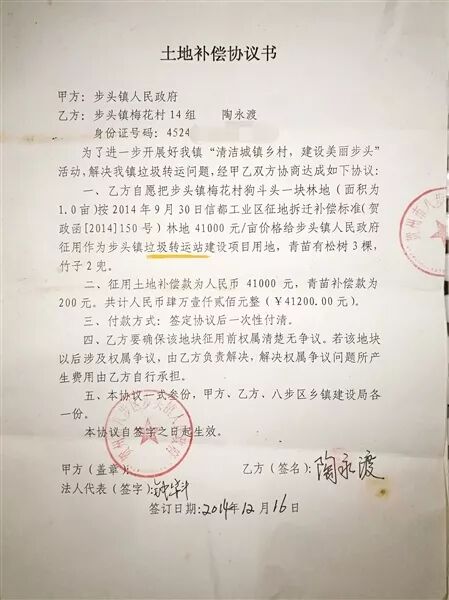 土地补偿协议书
甲方：步头镇人民政府
乙方：步头镇梅花村14组 陶永渡
身份证号码：4524
为了进一步开展好我镇“清洁城镇乡村，建设美丽步头”
活动，解决我镇垃圾转运问题，经甲乙双方协商达成如下协议：
一、乙方自愿把步头镇梅花村狗斗头一块林地（面积为
1.0亩）按2014年9月30日信都工业区征地拆迁补偿标准（贺
政函[2014]150号）林地41000元/亩价格给步头镇人民政府
征用作为步头镇垃圾转运站建设项目用地，青苗有松树3棵，
竹子2兜。
二、征用土地补偿款为人民币 41000 元，青苗补偿款为
200元。共计人民币肆万壹仟贰佰元整（￥41200.00）元。
三、付款方式：签定协议后一次性付清。
四、乙方要确保该地块征用前权属清楚无争议。若该地块
以后涉及权属争议，由乙方负责解决，解决权属争议问题所产
生费用由乙方自行承担。
五、本协议一式叁份，甲方、乙方、八步区乡镇建设局各
一份。
本协议自签字之日起生效。
甲方（盖章）： 乙方（签名）：陶永渡
法人代表（签字）：
签订日期：2014年12月16日